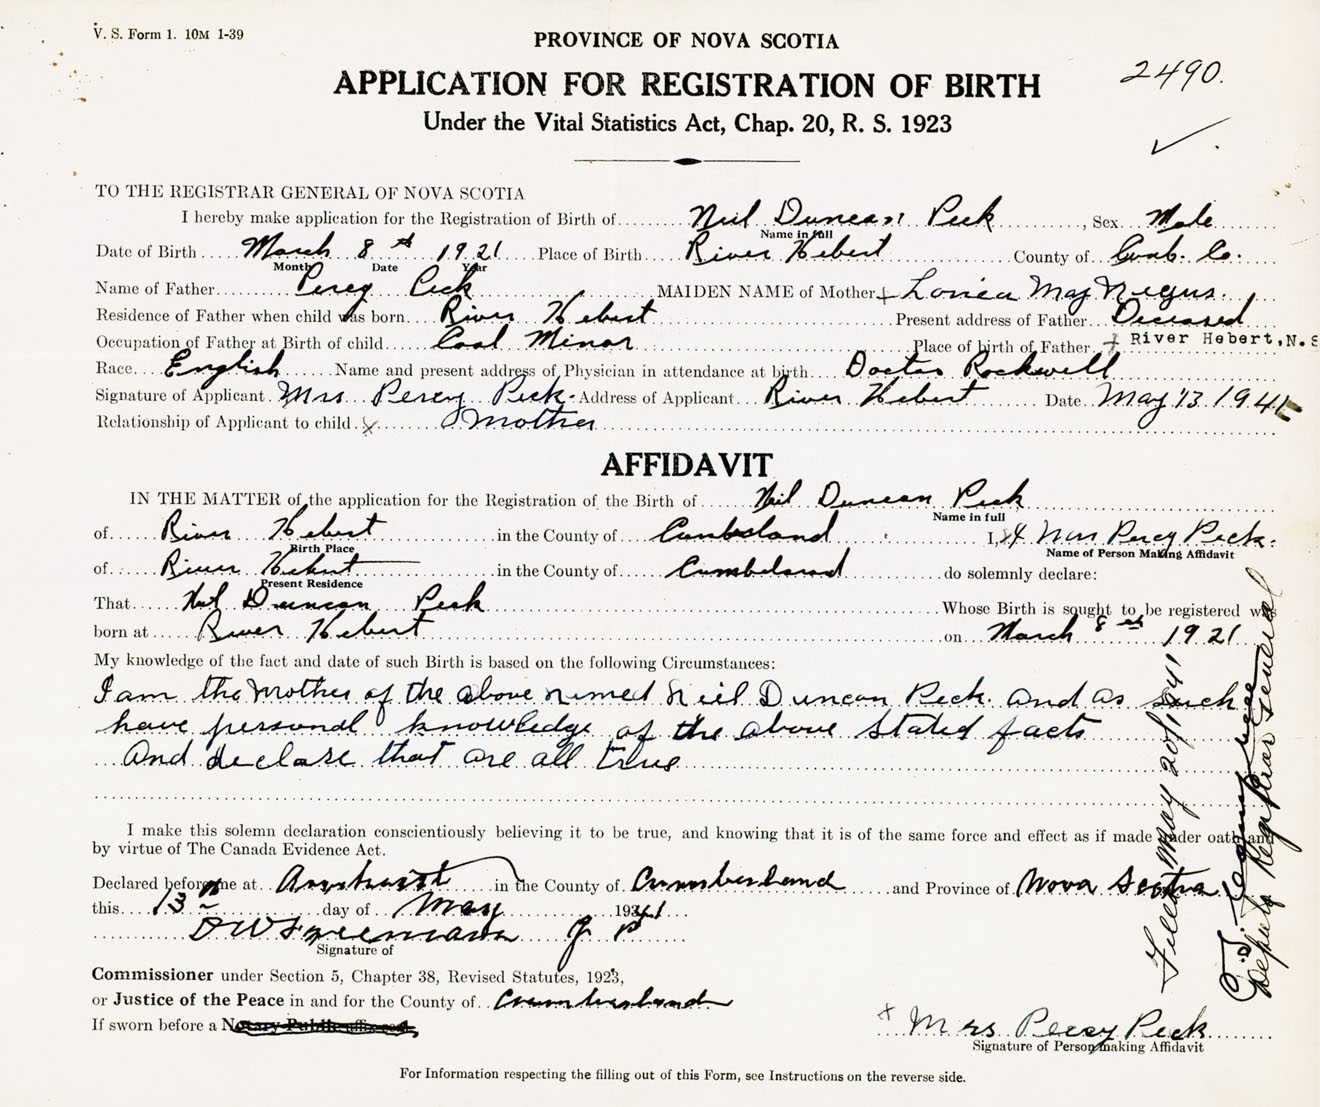 V. S. Form 1. 10M 1-39
PROVINCE OF NOVA SCOTIA
2490.
APPLICATION FOR REGISTRATION OF BIRTH
Under the Vital Statistics Act, Chap. 20, R. S. 1923
TO THE REGISTRAR GENERAL OF NOVA SCOTIA
I hereby make application for the Registration of Birth of Neil Duncan Peck, Sex Male
Name in full
Date of Birth March 8th 1921 Place of Birth River Hebert County of Cumb. Co.
Month Date Year
Name of Father Percy Peck MAIDEN NAME of Mother Louisa May Negus.
Residence of Father when child was born River Hebert Present address of Father Deceased
Occupation of Father at Birth of child Coal Minor Place of birth of Father River Hebert, N.S
Race English Name and present address of Physician in attendance at birth Doctor Rockwell
Signature of Applicant Mrs Percy Peck. Address of Applicant River Hebert Date May 13 1941
Relationship of Applicant to child x Mother
AFFIDAVIT
IN THE MATTER of the application for the Registration of the Birth of Neil Duncan Peck
Name in full
of River Hebert in the County of Cumbeland I, x Mrs Percy Peck.
Birth Place Name of Person Making Affidavit
of River Hebert in the County of Cumbeland do solemnly declare:
Present Residence
That Neil Duncan Peck Whose Birth is sought to be registered was
born at River Hebert on March 8th 1921
My knowledge of the fact and date of such Birth is based on the following Circumstances:
I am the Mother of the above named Neil Duncan Peck. and as such
have personal knowledge of the above stated facts
and declare that are all true
I make this solemn declaration conscientiously believing it to be true, and knowing that it is of the same force and effect as if made under oath and
by virtue of The Canada Evidence Act.
Declared before me at Amherst in the County of Cumberland and Province of Nova Scotia
this 13th day of May 1941
D W Freemann J P
Signature of
Commissioner under Section 5, Chapter 38, Revised Statutes, 1923,
or Justice of the Peace in and for the County of Cumberland
If sworn before a Notary Public affix seal.
x Mrs Percy Peck
Signature of Person making Affidavit
For Information respecting the filling out of this Form, see Instructions on the reverse side.
Filed May 20, 1941
Deputy Registrar General